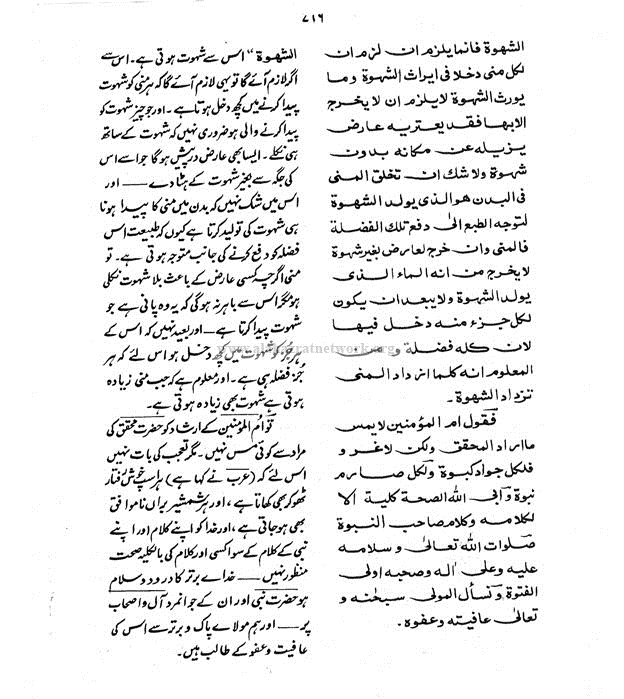 ۷۱۶
الشهوة فانما يلزم ان لزم ان
لكل منى دخلا فى ايراث الشهوة وما
يورث الشهوة لايلزم ان لا يخرج
الابها فقد يعتريه عارض
يزيله عن مكانه بدون
شهوة ولا شك ان تخلق المنى
فى البدن هو الذى يولد الشهوة
لتوجه الطبع الى دفع تلك الفضلة
فالمنى وان خرج لعارض بغير شهوة
لا يخرج من انه الماء الذى
يولد الشهوة ولا يبعد ان يكون
لكل جزء منه دخل فيها
لان كله فضلة و
المعلوم انه كلما ازداد المنى
تزداد الشهوة۔
فقول ام المؤمنين لا يمس
ما اراد المحقق ولكن لاغر و
فلكل جواد كبوة ولكل صارم
نبوة وابى الله الصحة كلية الا
لكلامه وكلام صاحب النبوة
صلوات الله تعالىٰ و سلامه
عليه وعلى اٰله وصحبه اولى
الفتوة ونسأل المولى سبحٰنه و
تعالىٰ عافيته وعفوه۔
الشهوة“ اس سے شہوت ہوتی ہے۔ اس سے
اگر لازم آئے گا تو یہی لازم آئے گا کہ ہر منی کو شہوت
پیدا کرنے میں کچھ دخل ہوتا ہے۔ اور جو چیز شہوت کو
پیدا کرنے والی ہو ضروری نہیں کہ شہوت کے ساتھ
ہی نکلے۔ ایسا بھی عارض درپیش ہوگا جو اسے اس
کی جگہ سے بغیر شہوت کے ہٹا دے —— اور
اس میں شک نہیں کہ بدن میں منی کا پیدا ہونا
ہی شہوت کی تولید کرتا ہے کیوں کہ طبیعت اس
فضلہ کو دفع کرنے کی جانب متوجہ ہوتی ہے۔ تو
منی اگرچہ کسی عارض کے باعث بلا شہوت نکلی
ہو مگر اس سے باہر نہ ہوگی کہ یہ وہ پانی ہے جو
شہوت پیدا کرتا ہے —— اور بعید نہیں کہ اس کے
ہر جُز کو شہوت میں کچھ دخل ہو اس لئے کہ ہر
جُز فضلہ ہی ہے۔ اور معلوم ہے کہ جب منی زیادہ
ہوتی ہے شہوت بھی زیادہ ہوتی ہے۔
تو ام المؤمنین کے ارشاد کو حضرت محقق کی
مراد سے کوئی مس نہیں۔ مگر تعجب کی بات نہیں
اس لئے کہ (عرب نے کہا ہے) ہر اسپ خوش رفتار
ٹھوکر بھی کھاتا ہے، اور ہر شمشیر براں ناموافق
بھی ہو جاتی ہے، اور خدا کو اپنے کلام اور اپنے
نبی کے کلام کے سوا کسی اور کلام کی بالکلیہ صحت
منظور نہیں —— خدائے برتر کا درود و سلام
ہو حضرت نبی اور ان کے جوانمرد آل و اصحاب
پر —— اور ہم مولائے پاک و برتر سے اس کی
عافیت و عفو کے طالب ہیں۔